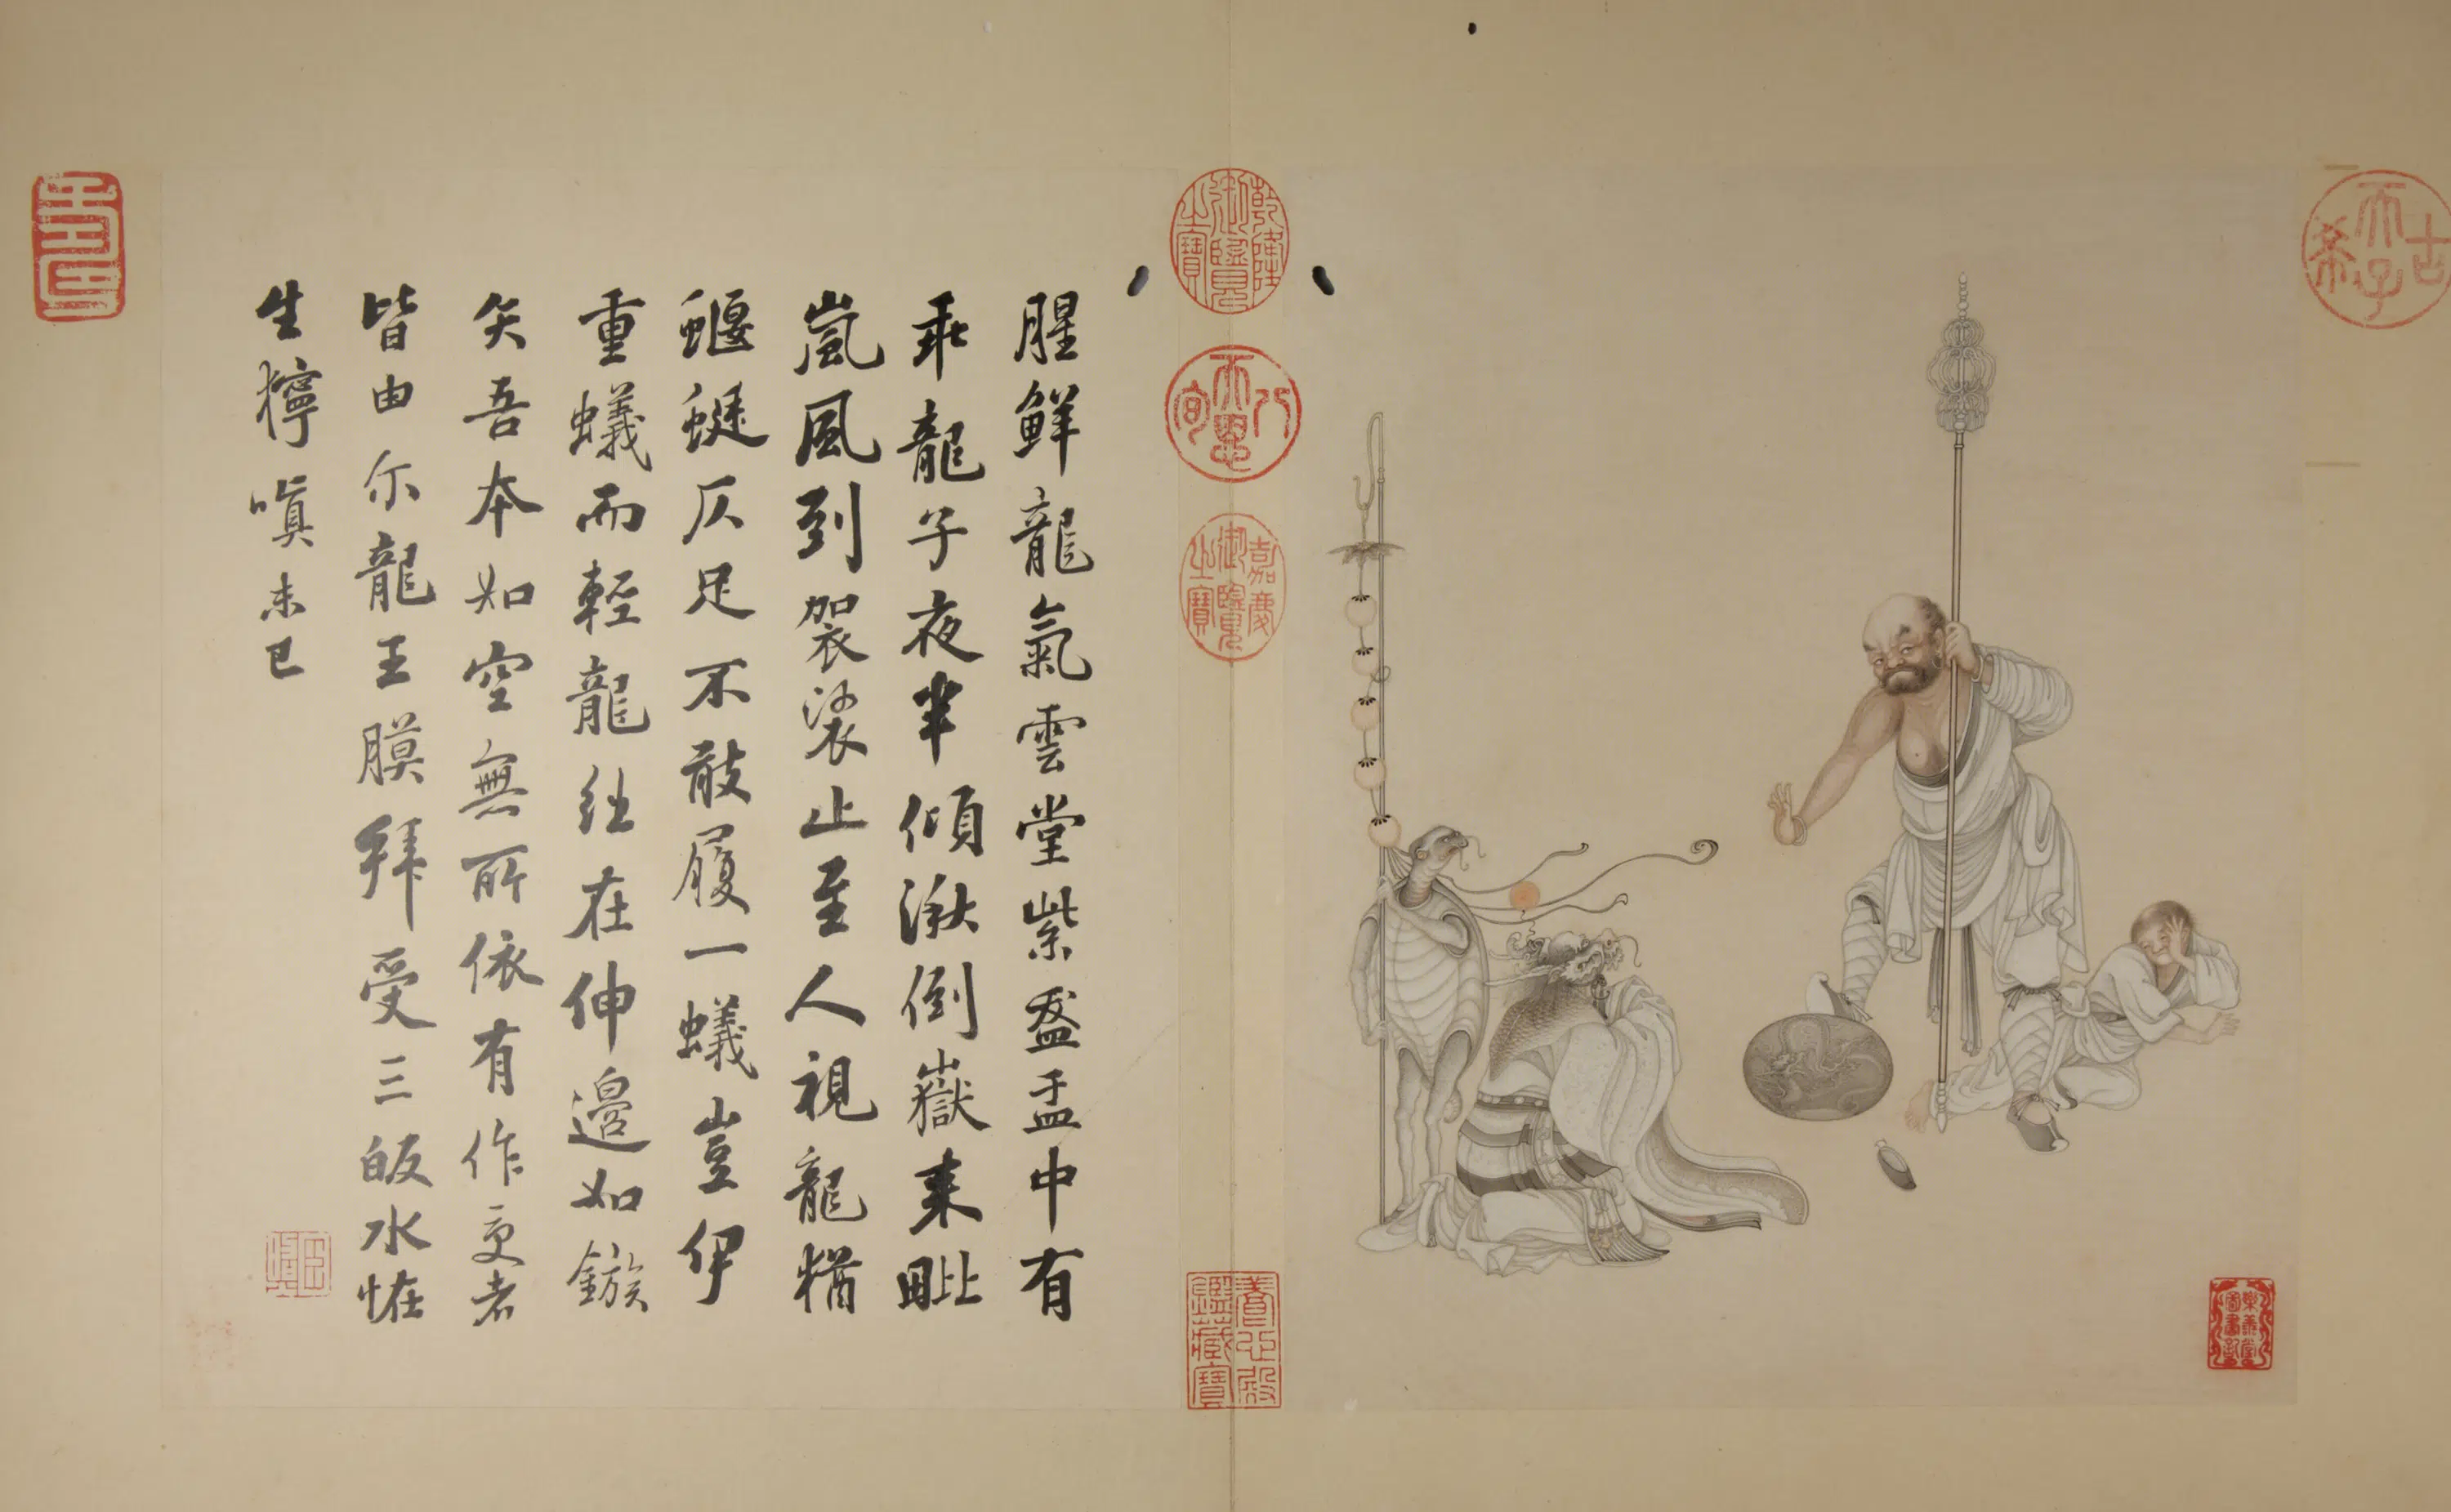 腥鮮龍氣雲堂紫盋盂中有
乖龍子夜半傾湫倒嶽来毗
嵐風到袈裟止至人視龍猶
蝘蜓仄足不敢履一蟻豈伊
重蟻而輕龍総在伸邊如鏃
矢吾本如空無所依有作受者
皆由尒龍王膜拜受三皈水恠
生獰嗔未已
乾隆御覽之寶
八徵耄念
嘉慶御覽之寶
養心殿鑑藏寶
古希天子
壽
樂善堂圖書記